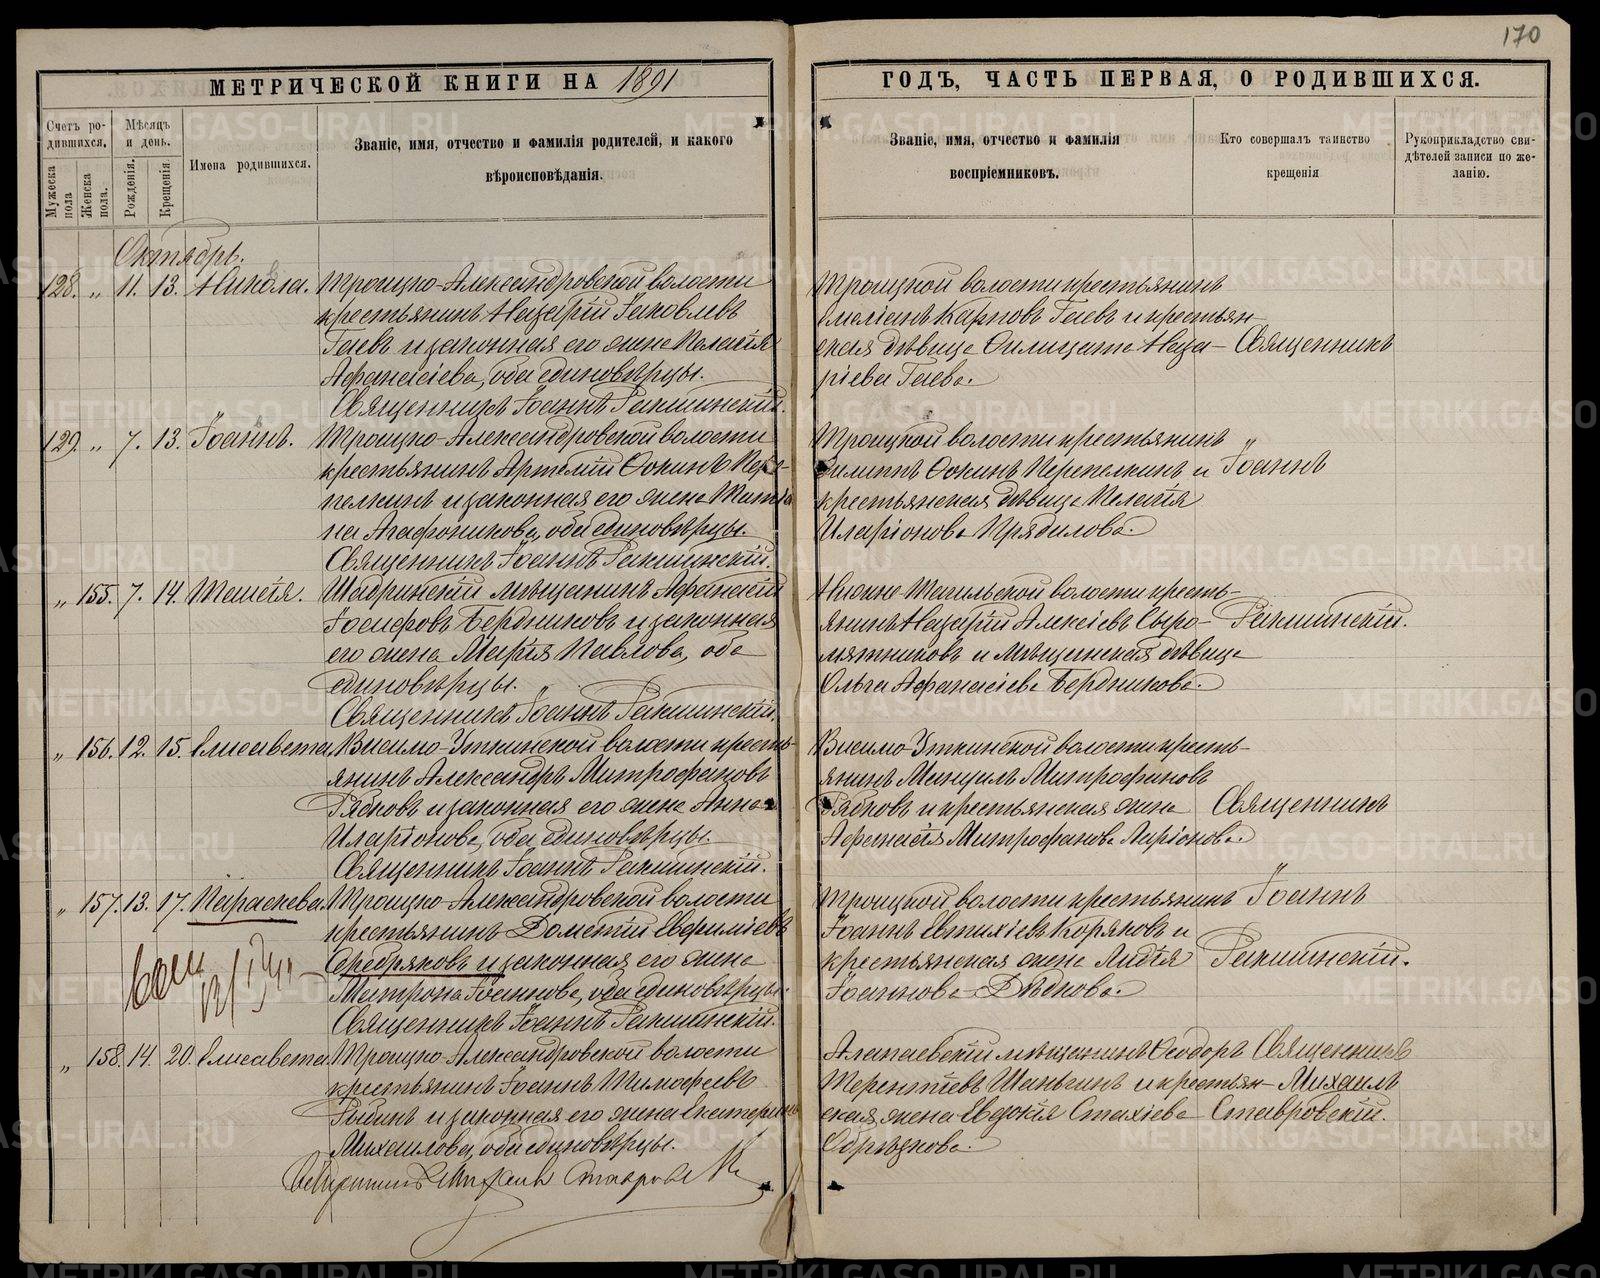 170
МЕТРИЧЕСКОЙ КНИГИ НА 1891
ГОДЪ, ЧАСТЬ ПЕРВАЯ, О РОДИВШИХСЯ.
Счетъ ро-
дившихся.
Мужеска пола
Женска пола.
Мѣсяцъ
и день.
Рожденія.
Крещенія
Имена родившихся.
Званіе, имя, отчество и фамилія родителей, и какого
вѣроисповѣданія.
Званіе, имя, отчество и фамилія
воспріемниковъ.
Кто совершалъ таинство
крещенія
Рукоприкладство сви-
дѣтелей записи по же-
ланію.
Октябрь.
128. „ 11. 13. Никола. Троицко-Александровской волости
крестьянинъ Назарій Іаковлевъ
Гаевъ и законная его жена Пелагія
Афанасіева, оба единовѣрцы.
Священникъ Іоаннъ Ракшинскій.
Троицкой волости крестьянинъ
Карповъ Гаевъ и крестьян-
ская дѣвица Наза-
ріева Гаева.
Священникъ
129. „ 7. 13. Іоаннъ. Троицко-Александровской волости
крестьянинъ Артемій Фокинъ Пере-
пелкинъ и законная его жена Татья
на Агафоникова, оба единовѣрцы.
Священникъ Іоаннъ Ракшинскій.
Троицкой волости крестьянинъ
Филиппъ Фокинъ Перепелкинъ и
крестьянская дѣвица Пелагія
Иларіонова Прядилова.
Іоаннъ
„ 155. 7. 14. Таисія. Шадринскій мѣщанинъ Афанасій
Іосифовъ Бердниковъ и законная
его жена Марія Павлова, оба
единовѣрцы.
Священникъ Іоаннъ Ракшинскій.
Нижне-Тагильской волости кресть-
янинъ Назарій Алексіевъ Сыро-
мятниковъ и мѣщанская дѣвица
Ольга Афанасіева Бердникова.
Ракшинскій.
„ 156. 12. 15. Елисавета. Висимо-Уткинской волости кресть-
янинъ Александръ Митрофановъ
Рябковъ и законная его жена Анна
Иларіонова, оба единовѣрцы.
Священникъ Іоаннъ Ракшинскій.
Висимо-Уткинской волости кресть-
янинъ Митрофановъ
Рябковъ и крестьянская жена
Афанасія Митрофанова Ларіонова.
Священникъ
„ 157. 13. 17. Параскева. Троицко-Александровской волости
крестьянинъ Дометій Евфиміевъ
Серебряковъ и законная его жена
Матрона Іоаннова, оба единовѣрцы.
Священникъ Іоаннъ Ракшинскій.
Троицкой волости крестьянинъ
Іоаннъ Евтихіевъ Коряковъ и
крестьянская жена Лидія
Іоаннова Дѣдкова.
Іоаннъ
Ракшинскій.
„ 158. 14. 20. Елисавета. Троицко-Александровской волости
крестьянинъ Іоаннъ Тимофеевъ
Рыбинъ и законная его жена Екатерина
Михаилова, оба единовѣрцы.
Священникъ Михаилъ Ставровскій
Алапаевскій мѣщанинъ Феодоръ
Терентіевъ Шаньгинъ и крестьян-
ская жена Евдокія Стахіева
Обрѣзкова.
Священникъ
Михаилъ
Ставровскій.
METRIKI.GASO-URAL.RU